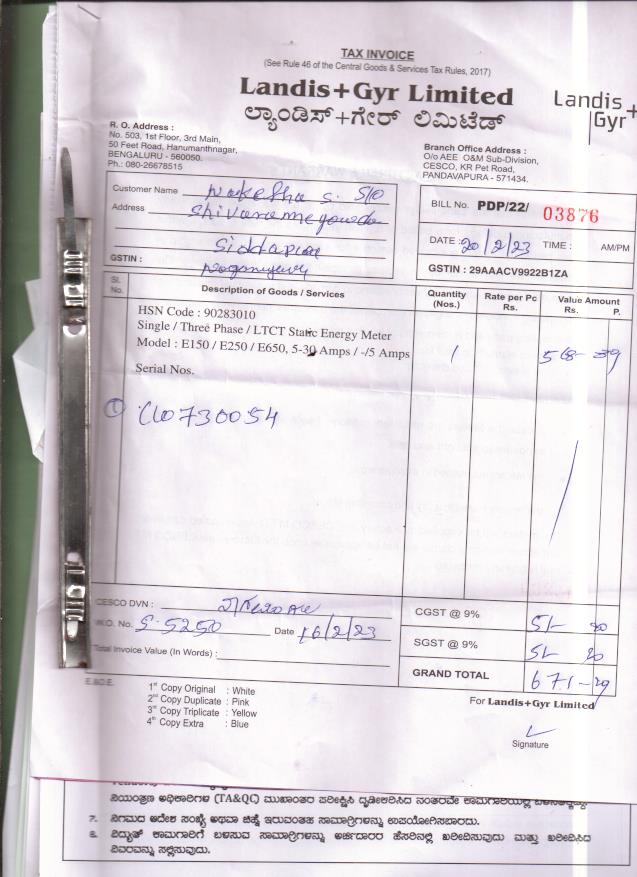 TAX INVOICE
(See Rule 46 of the Central Goods & Services Tax Rules, 2017)
Landis+Gyr Limited
ಲ್ಯಾಂಡಿಸ್+ಗೇರ್ ಲಿಮಿಟೆಡ್
Landis+
Gyr
R. O. Address :
No. 503, 1st Floor, 3rd Main,
50 Feet Road, Hanumanthnagar,
BENGALURU - 560050.
Ph.: 080-26678515
Branch Office Address :
O/o AEE O&M Sub-Division,
CESCO, KR Pet Road,
PANDAVAPURA - 571434.
Customer Name S. S/O
Address
GSTIN :
BILL No. PDP/22/ 03876
DATE : 20/2/23 TIME : AM/PM
GSTIN : 29AAACV9922B1ZA
Sl. No. Description of Goods / Services Quantity (Nos.) Rate per Pc Rs. Value Amount Rs. P.
HSN Code : 90283010
Single / Three Phase / LTCT Static Energy Meter
Model : E150 / E250 / E650, 5-30 Amps / -/5 Amps 1 568-89
Serial Nos.
1
CESCO DVN :
W.O. No. S-5250 Date 16/2/23
Total Invoice Value (In Words) :
CGST @ 9% 51- 20
SGST @ 9% 51- 20
GRAND TOTAL 671-29
E.&O.E.
1st Copy Original : White
2nd Copy Duplicate : Pink
3rd Copy Triplicate : Yellow
4th Copy Extra : Blue
For Landis+Gyr Limited
Signature
ನಿಯಂತ್ರಣ ಅಧಿಕಾರಿಗಳ (TA&QC) ಮುಖಾಂತರ ಪರೀಕ್ಷಿಸಿ ದೃಢೀಕರಿಸಿದ ನಂತರವೇ
೭. ನಿಗಮದ ಆದೇಶ ಸಂಖ್ಯೆ ಅಥವಾ ಚಿಹ್ನೆ ಇರುವಂತಹ ಸಾಮಾಗ್ರಿಗಳನ್ನು ಉಪಯೋಗಿಸಬಾರದು.
೩. ವಿದ್ಯುತ್ ಕಾಮಗಾರಿಗೆ ಬಳಸುವ ಸಾಮಾಗ್ರಿಗಳನ್ನು ಅರ್ಜಿದಾರರ ಹೆಸರಿನಲ್ಲಿ ಖರೀದಿಸುವುದು ಮತ್ತು ಖರೀದಿಸಿದ
ವಿವರವನ್ನು ಸಲ್ಲಿಸುವುದು.